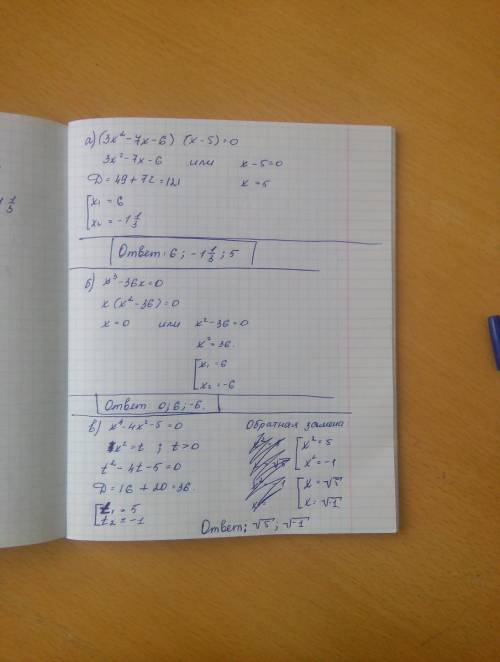 а) (3x²-7x-6) (x-5)=0
3x²-7x-6 или x-5=0
D=49+72=121 x=5
[x₁=6
x₂=-1 1/3
Ответ: 6; -1 1/3; 5
б) x³-36x=0
x(x²-36)=0
x=0 или x²-36=0
x²=36.
[x₁=6
x₂=-6
Ответ: 0; 6; -6.
в) x⁴-4x²-5=0
x²=t ; t>0
t²-4t-5=0
D=16+20=36.
[t₁=5
t₂=-1
Обратная замена
[x²=5
x²=-1
[x=√5
x=√-1
Ответ; √5; √-1
1/3